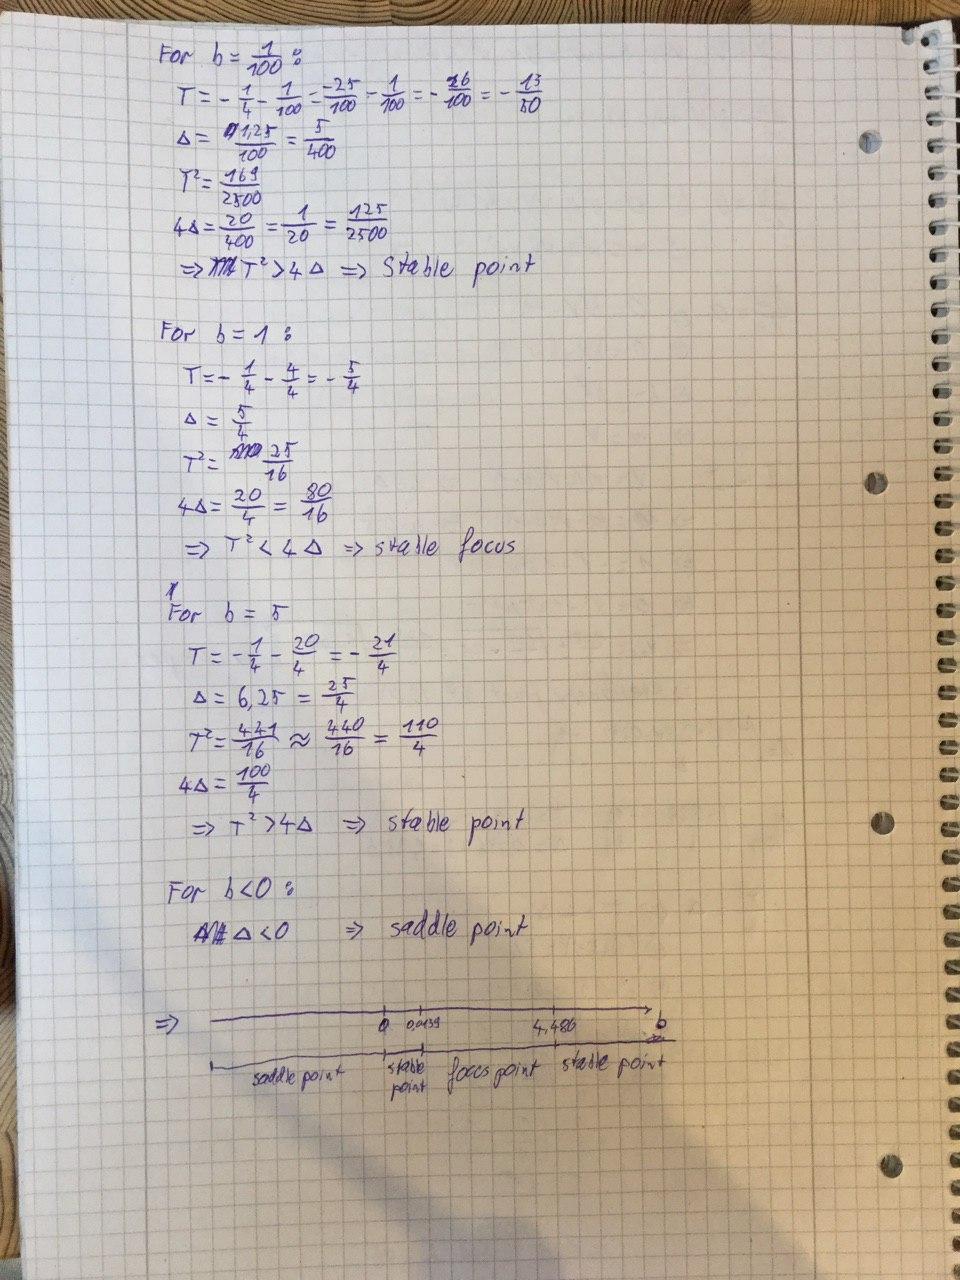 For b = 1/100 :
T = - 1/4 - 1/100 = -25/100 - 1/100 = - 26/100 = - 13/50
Δ = 1,25/100 = 5/400
T² = 169/2500
4Δ = 20/400 = 1/20 = 125/2500
=> T² > 4Δ => Stable point
For b = 1 :
T = - 1/4 - 4/4 = - 5/4
Δ = 5/4
T² = 25/16
4Δ = 20/4 = 80/16
=> T² < 4Δ => stable focus
For b = 5
T = - 1/4 - 20/4 = - 21/4
Δ = 6,25 = 25/4
T² = 441/16 ≈ 440/16 = 110/4
4Δ = 100/4
=> T² > 4Δ => stable point
For b < 0 :
Δ < 0 => saddle point
=> 0 0,0139 4,486 b
saddle point stable point focus point stable point